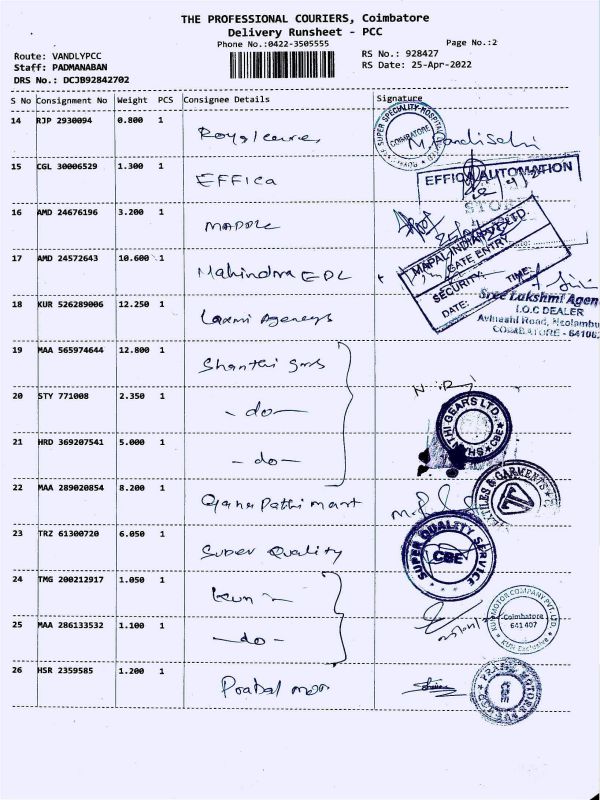 THE PROFESSIONAL COURIERS, Coimbatore
Delivery Runsheet - PCC
Phone No.:0422-3505555
Page No.:2
Route: VANDLYPCC
RS No.: 928427
Staff: PADMANABAN
RS Date: 25-Apr-2022
DRS No.: DCJB92842702
S No Consignment No Weight PCS Consignee Details Signature
14 RJP 2930094 0.800 1
SUPER SPECIALITY HOSPITAL
COIMBATORE
15 CGL 30006529 1.300 1 EFFica
EFFICA AUTOMATION
STORES
16 AMD 24676196 3.200 1
MAPAL INDIA PVT. LTD.
GATE ENTRY
SECURITY:
DATE: TIME:
17 AMD 24572643 10.600 1 Mahindra EPC
18 KUR 526289006 12.250 1 Laxmi Agencys
Sree Lakshmi Agen
I.O.C DEALER
Avinashi Road, Neelambu
COIMBATORE - 64106
19 MAA 565974644 12.800 1 Shanthi
20 STY 771008 2.350 1 -do-
21 HRD 369207541 5.000 1 -do-
SHANTHI GEARS LTD. CBE
22 MAA 289020854 8.200 1 GanaPathi
TEXTILES & GARMENTS
23 TRZ 61300720 6.050 1 Super Quality
SUPER QUALITY SERVICE
CBE
24 TMG 200212917 1.050 1 Kun
25 MAA 286133532 1.100 1 -do-
KUN MOTOR COMPANY PVT. LTD.
Coimbatore
641 407
KUN Exclusive
26 HSR 2359585 1.200 1 Prabal